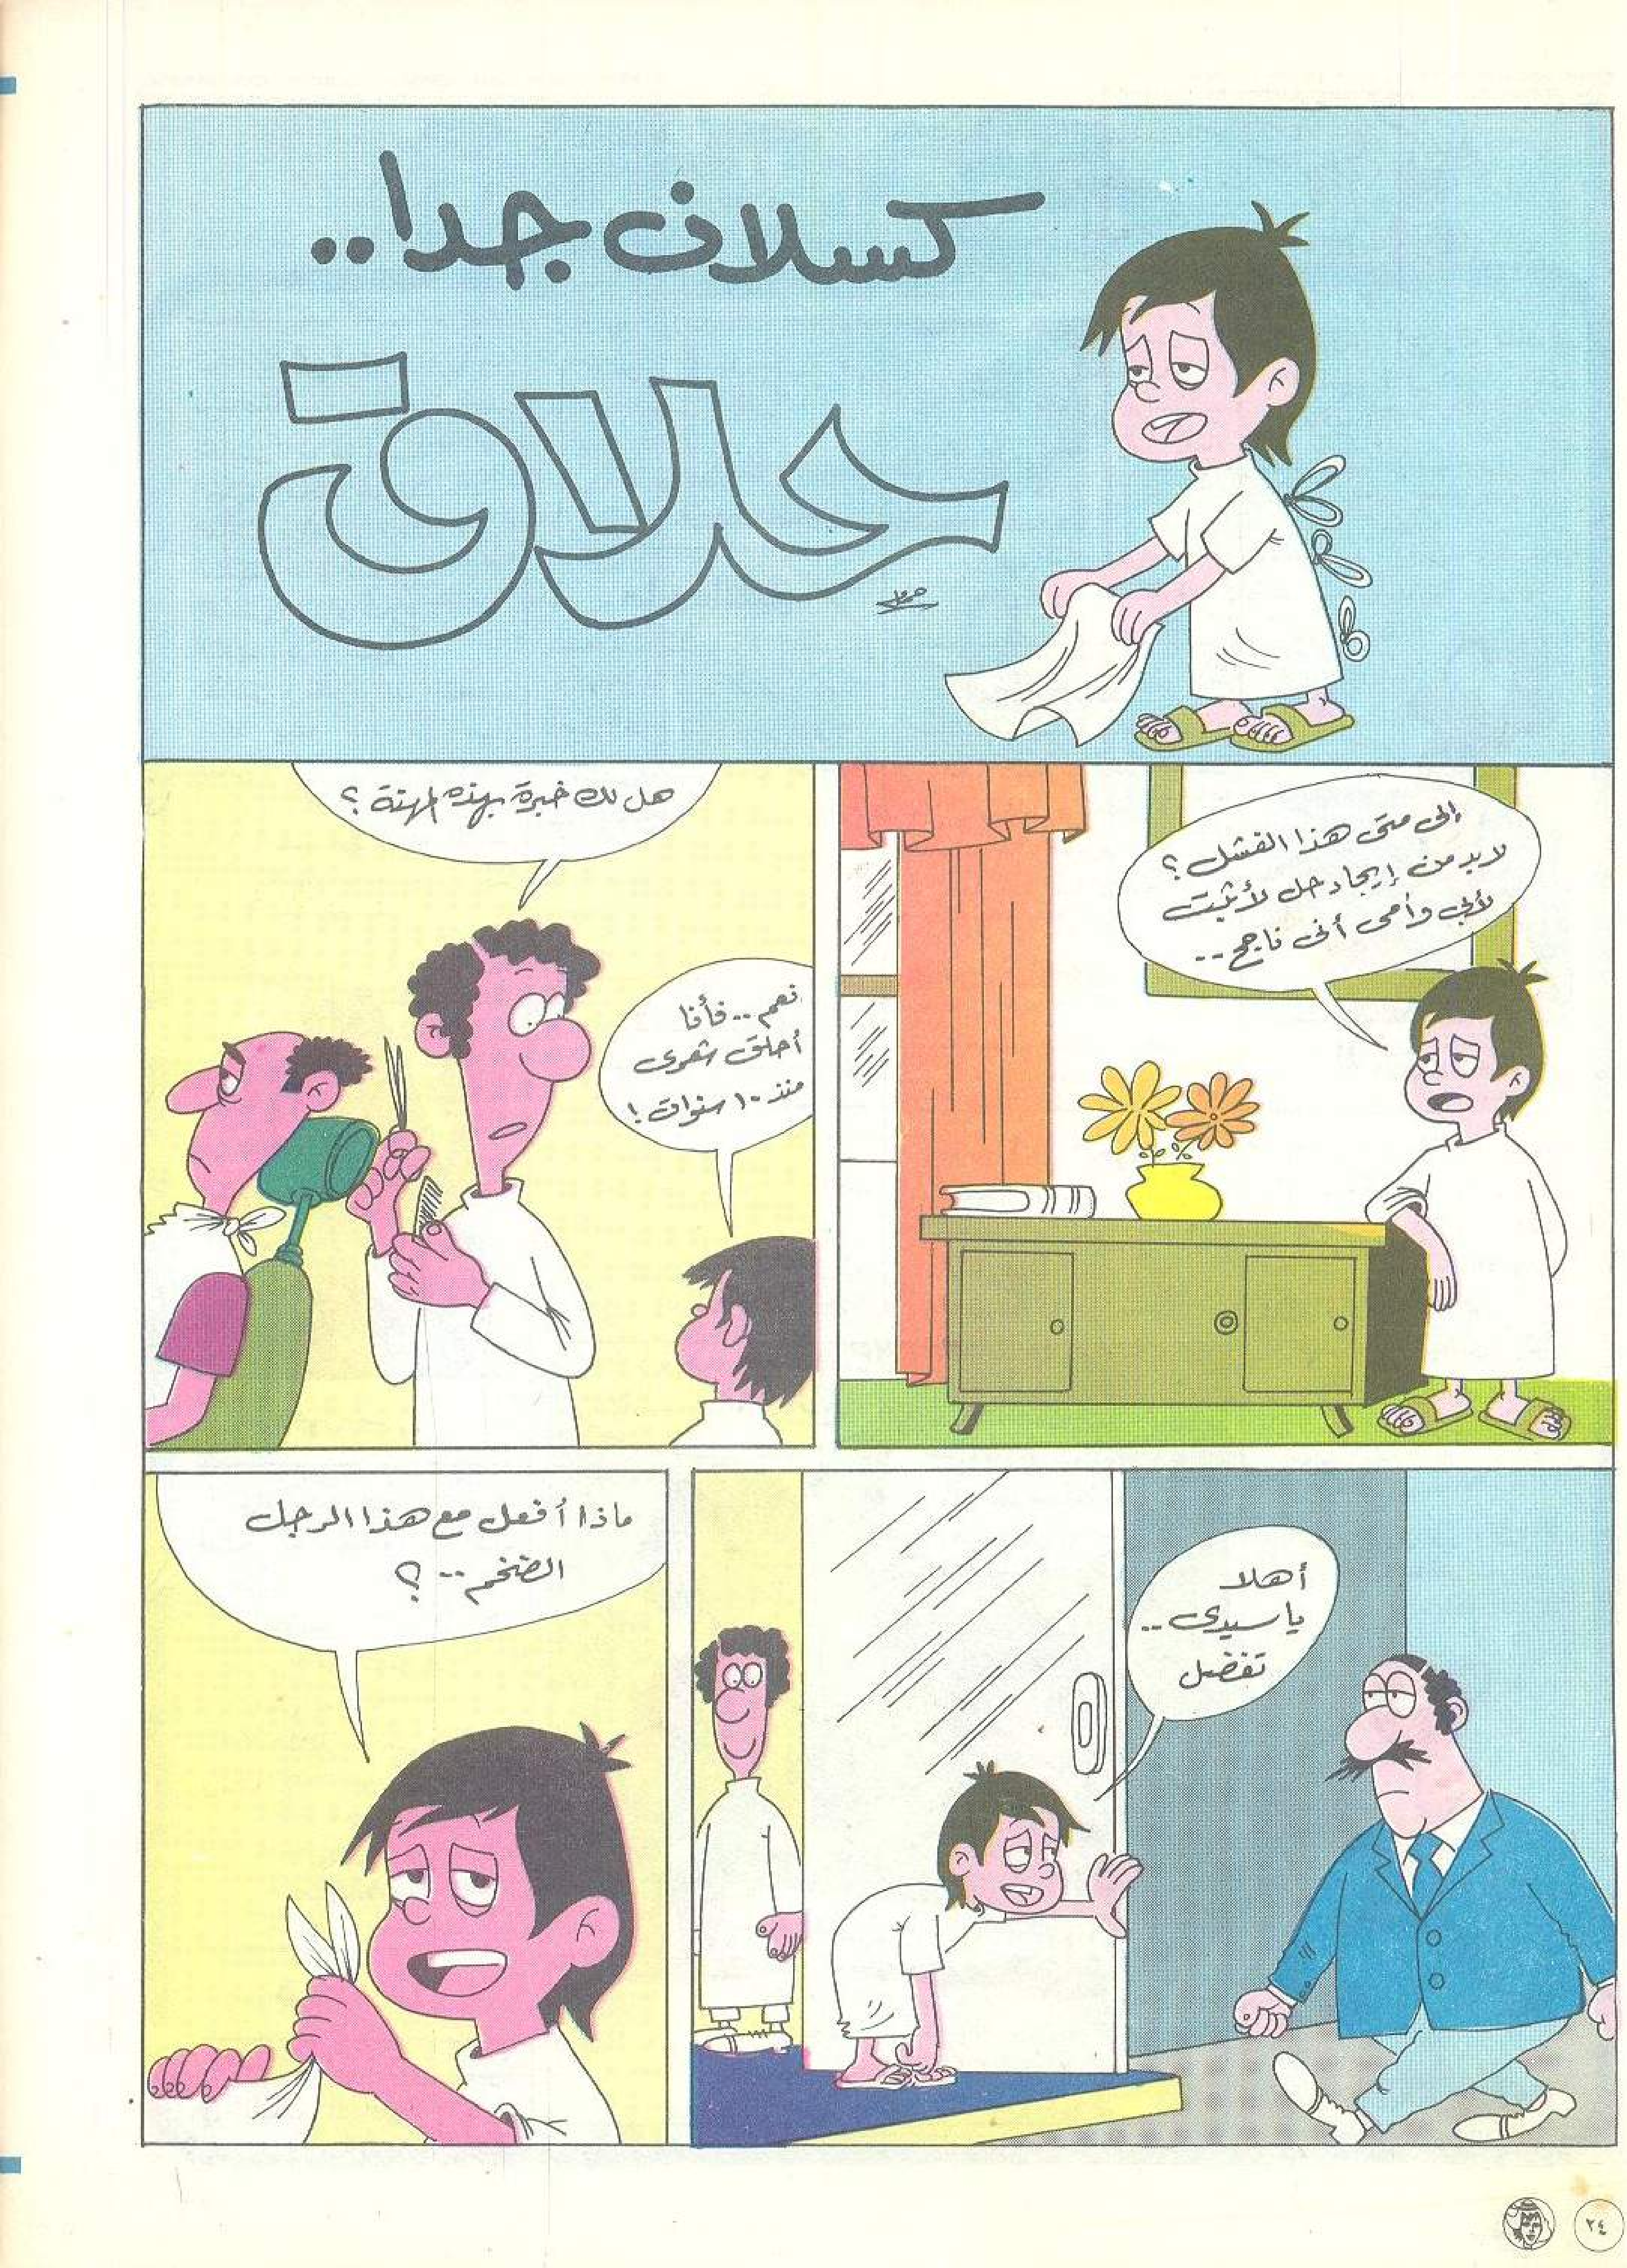 كسلان جدا..
حلاق
إلى متى هذا الفشل؟
لابد من إيجاد حل لأثبت
لأبي وأمى أنى ناجح..
هل لك خبرة بهذه المهنة؟
نعم.. فأنا
أحلق شعرى
منذ ١٠ سنوات!
أهلا
ياسيدى..
تفضل
ماذا أفعل مع هذا الرجل
الضخم..؟
٢٤